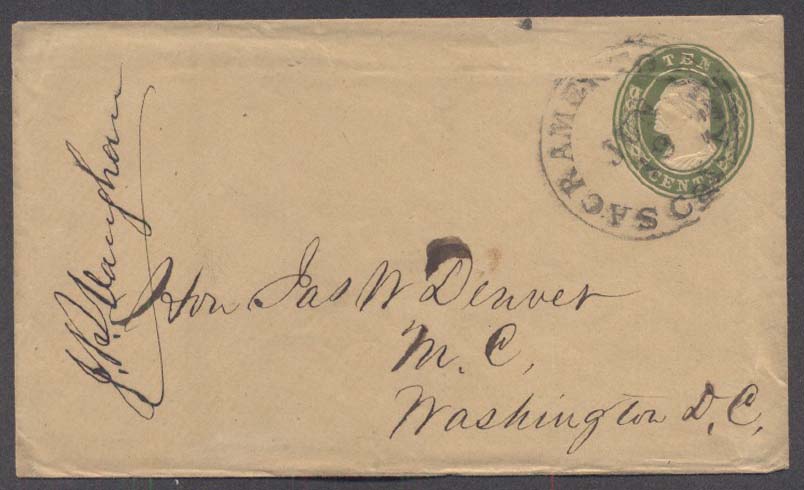 TEN
CENTS
SACRAMENTO CITY Cal.
9
J. P. Vaughan
Hon Jas W Denver
M. C,
Washington D. C,